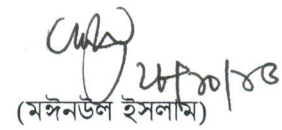 ২৮/১০/১৩
(মঈনউল ইসলাম)